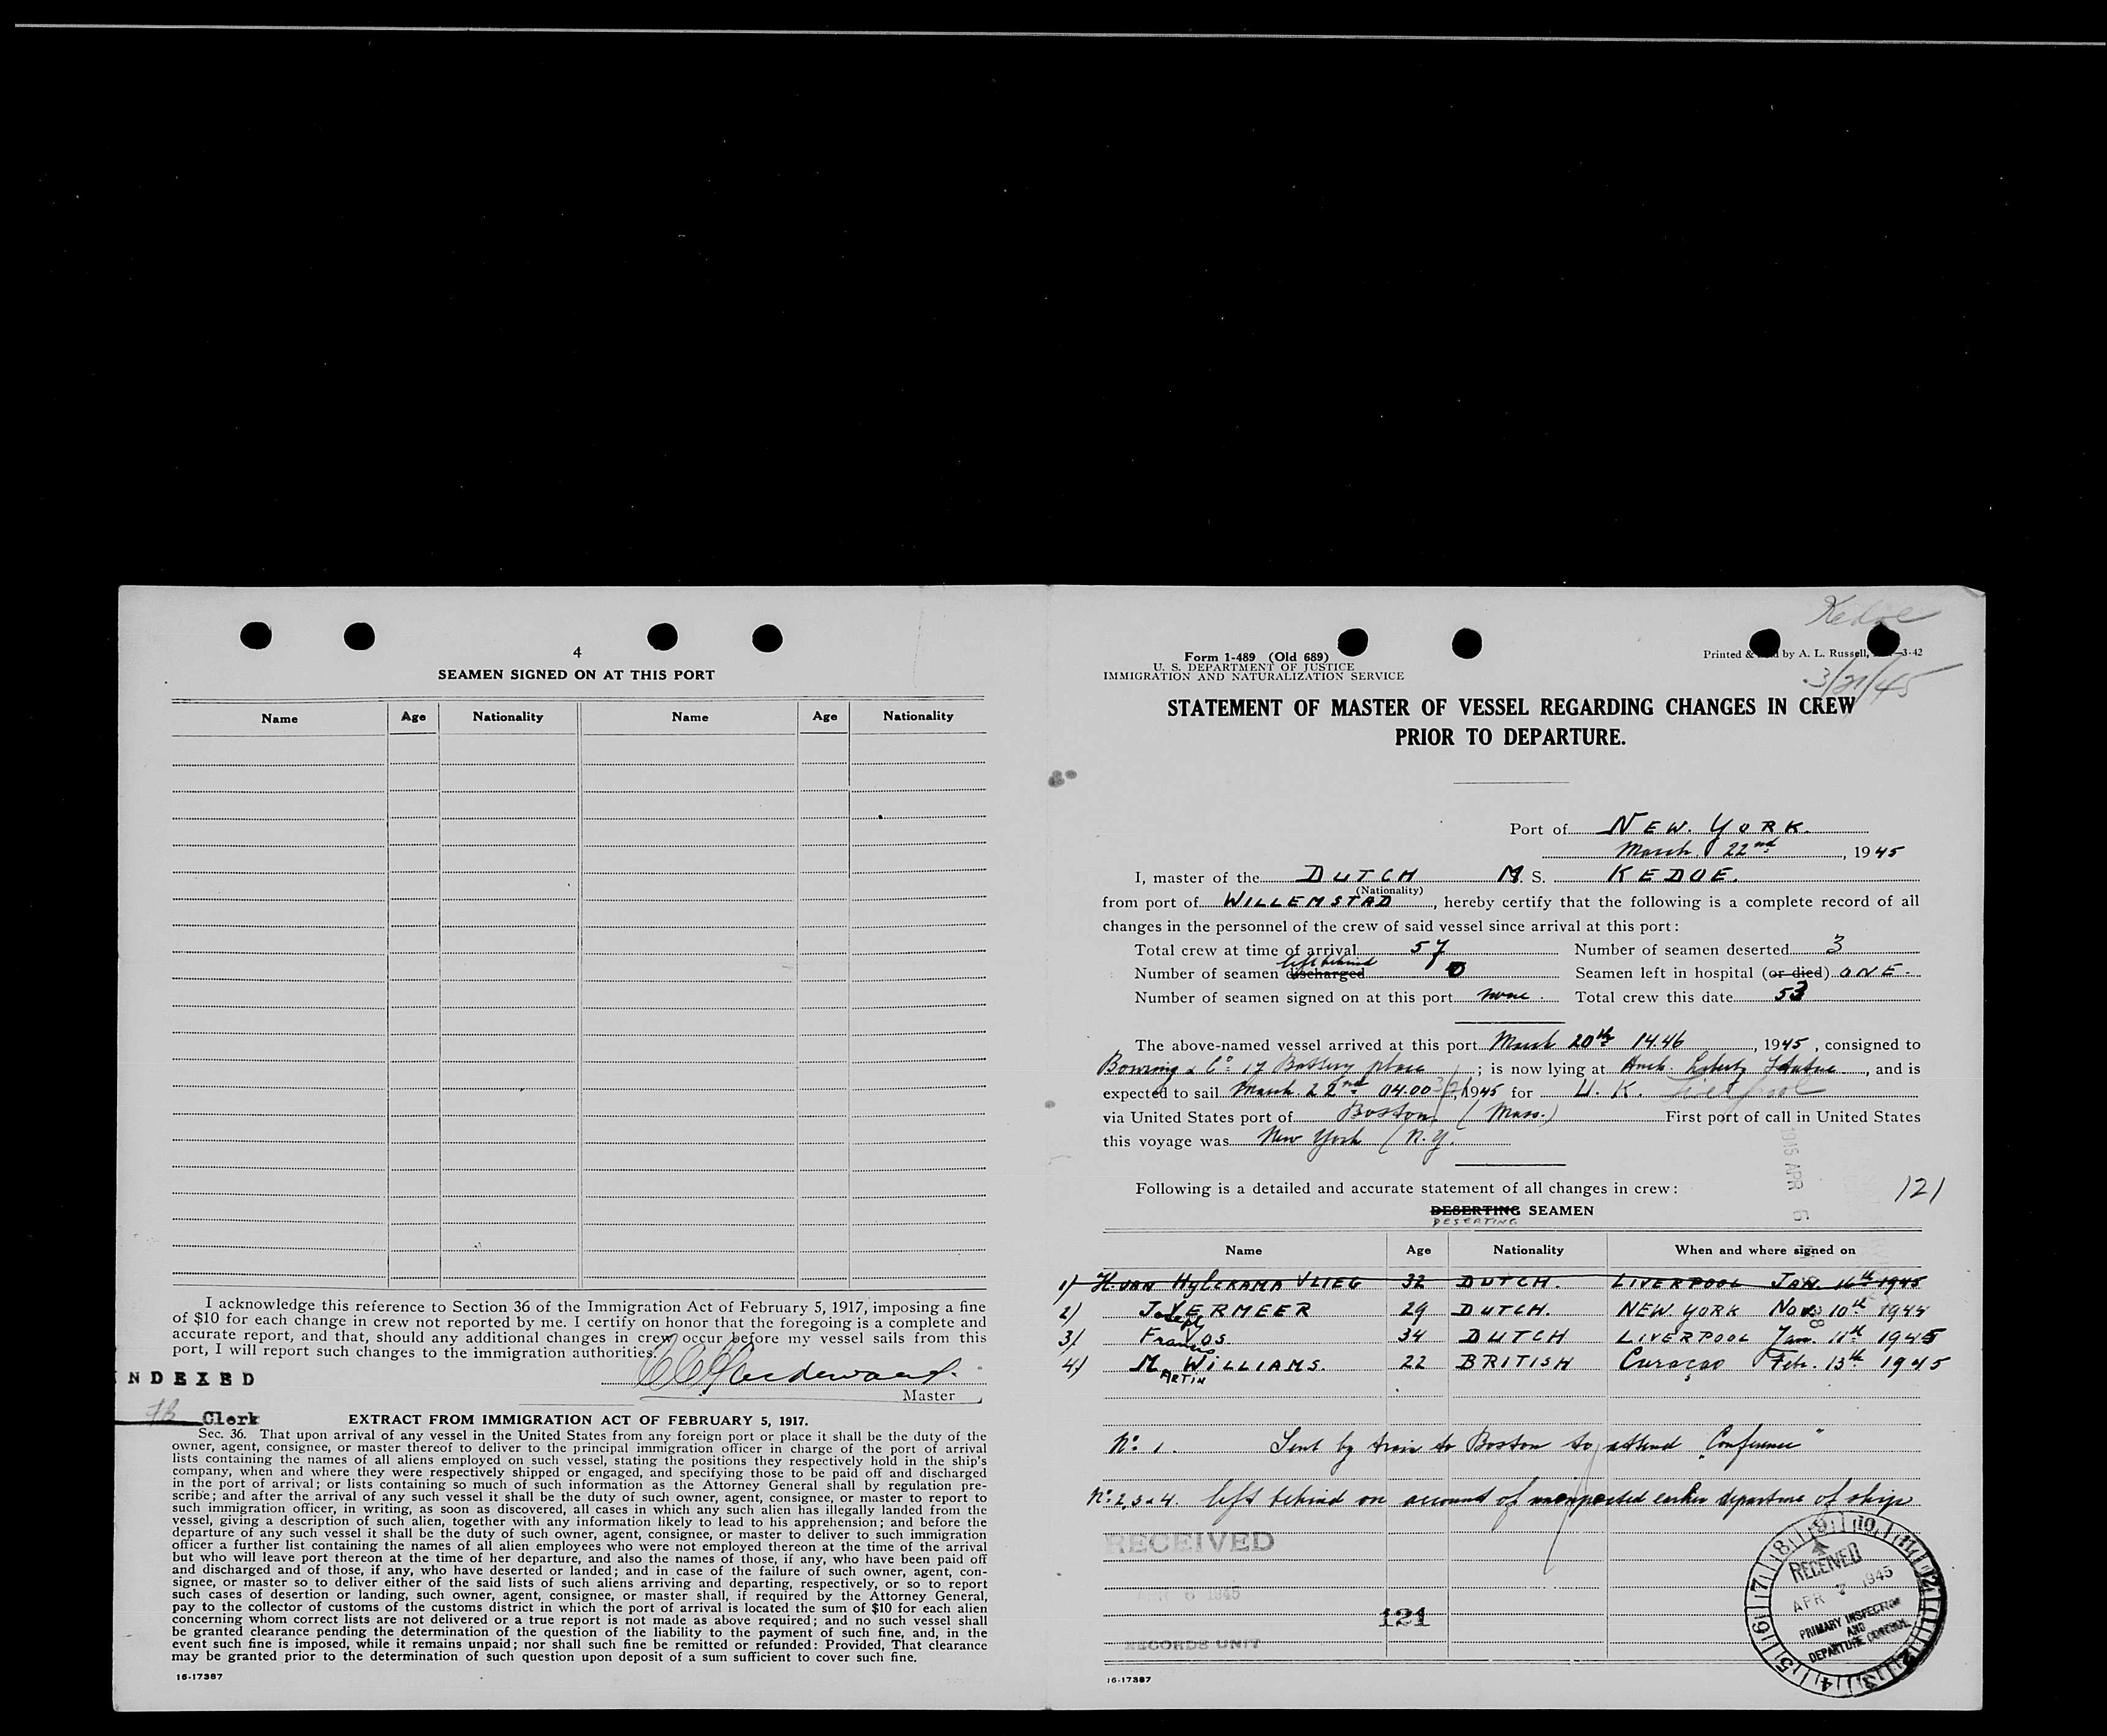 4
SEAMEN SIGNED ON AT THIS PORT
Name Age Nationality Name Age Nationality
I acknowledge this reference to Section 36 of the Immigration Act of February 5, 1917, imposing a fine
of $10 for each change in crew not reported by me. I certify on honor that the foregoing is a complete and
accurate report, and that, should any additional changes in crew occur before my vessel sails from this
port, I will report such changes to the immigration authorities.
NDEXED
Master
Clerk
EXTRACT FROM IMMIGRATION ACT OF FEBRUARY 5, 1917.
Sec. 36. That upon arrival of any vessel in the United States from any foreign port or place it shall be the duty of the
owner, agent, consignee, or master thereof to deliver to the principal immigration officer in charge of the port of arrival
lists containing the names of all aliens employed on such vessel, stating the positions they respectively hold in the ship's
company, when and where they were respectively shipped or engaged, and specifying those to be paid off and discharged
in the port of arrival; or lists containing so much of such information as the Attorney General shall by regulation pre-
scribe; and after the arrival of any such vessel it shall be the duty of such owner, agent, consignee, or master to report to
such immigration officer, in writing, as soon as discovered, all cases in which any such alien has illegally landed from the
vessel, giving a description of such alien, together with any information likely to lead to his apprehension; and before the
departure of any such vessel it shall be the duty of such owner, agent, consignee, or master to deliver to such immigration
officer a further list containing the names of all alien employees who were not employed thereon at the time of the arrival
but who will leave port thereon at the time of her departure, and also the names of those, if any, who have been paid off
and discharged and of those, if any, who have deserted or landed; and in case of the failure of such owner, agent, con-
signee, or master so to deliver either of the said lists of such aliens arriving and departing, respectively, or so to report
such cases of desertion or landing, such owner, agent, consignee, or master shall, if required by the Attorney General,
pay to the collector of customs of the customs district in which the port of arrival is located the sum of $10 for each alien
concerning whom correct lists are not delivered or a true report is not made as above required; and no such vessel shall
be granted clearance pending the determination of the question of the liability to the payment of such fine, and, in the
event such fine is imposed, while it remains unpaid; nor shall such fine be remitted or refunded: Provided, That clearance
may be granted prior to the determination of such question upon deposit of a sum sufficient to cover such fine.
16-17387
Kedoe
3/21/45
Form 1-489 (Old 689)
U. S. DEPARTMENT OF JUSTICE
IMMIGRATION AND NATURALIZATION SERVICE
Printed & by A. L. Russell, 3-42
STATEMENT OF MASTER OF VESSEL REGARDING CHANGES IN CREW
PRIOR TO DEPARTURE.
Port of NEW YORK.
March 22nd, 1945
I, master of the DUTCH M. S. KEDOE.
(Nationality)
from port of WILLEMSTAD, hereby certify that the following is a complete record of all
changes in the personnel of the crew of said vessel since arrival at this port:
Total crew at time of arrival 57 Number of seamen deserted 3
left behind
Number of seamen discharged 0 Seamen left in hospital (or died) ONE.
Number of seamen signed on at this port none. Total crew this date 53
The above-named vessel arrived at this port March 20th 14.46, 1945, consigned to
Bowring & Co 17 Battery place; is now lying at Anch. Liberty Statue, and is
expected to sail March 22nd 04.00, 1945 for U. K. Liverpool
via United States port of Boston (Mass.) First port of call in United States
this voyage was New York (N.Y.
1945 APR 6
Following is a detailed and accurate statement of all changes in crew:
121
DESERTING SEAMEN
DESERTING
Name Age Nationality When and where signed on
1) H. VAN HYLCKAMA VLIEG 32 DUTCH. LIVERPOOL JAN. 16th 1945
2) Joseph VERMEER 29 DUTCH. NEW YORK Nov. 10th 1944
3) Francis VOS. 34 DUTCH LIVERPOOL Jan. 11th 1945
4) MARTIN WILLIAMS. 22 BRITISH Curaçao Feb. 13th 1945
No 1. Sent by train to Boston to attend "Conference"
No 2, 3 & 4. left behind on account of unexpected earlier departure of ship
RECEIVED
APR 6 1945
RECORDS UNIT
121
RECEIVED
APR 1945
PRIMARY INSPECTION
AND
DEPARTURE CONTROL
16-17387